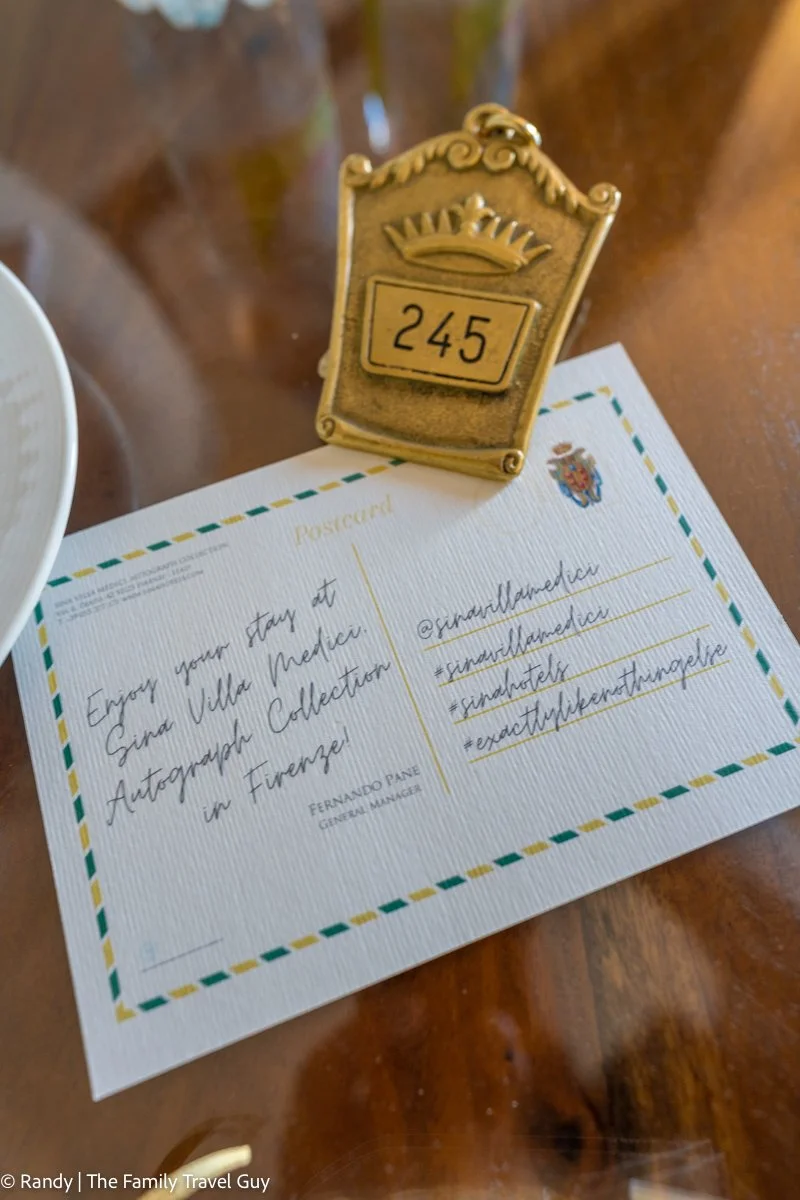 245
Postcard
SINA VILLA MEDICI, AUTOGRAPH COLLECTION
Enjoy your stay at
Sina Villa Medici,
Autograph Collection
in Firenze!
FERNANDO PANE
GENERAL MANAGER
@sinavillamedici
#sinavillamedici
#sinahotels
#exactlylikenothingelse
© Randy | The Family Travel Guy